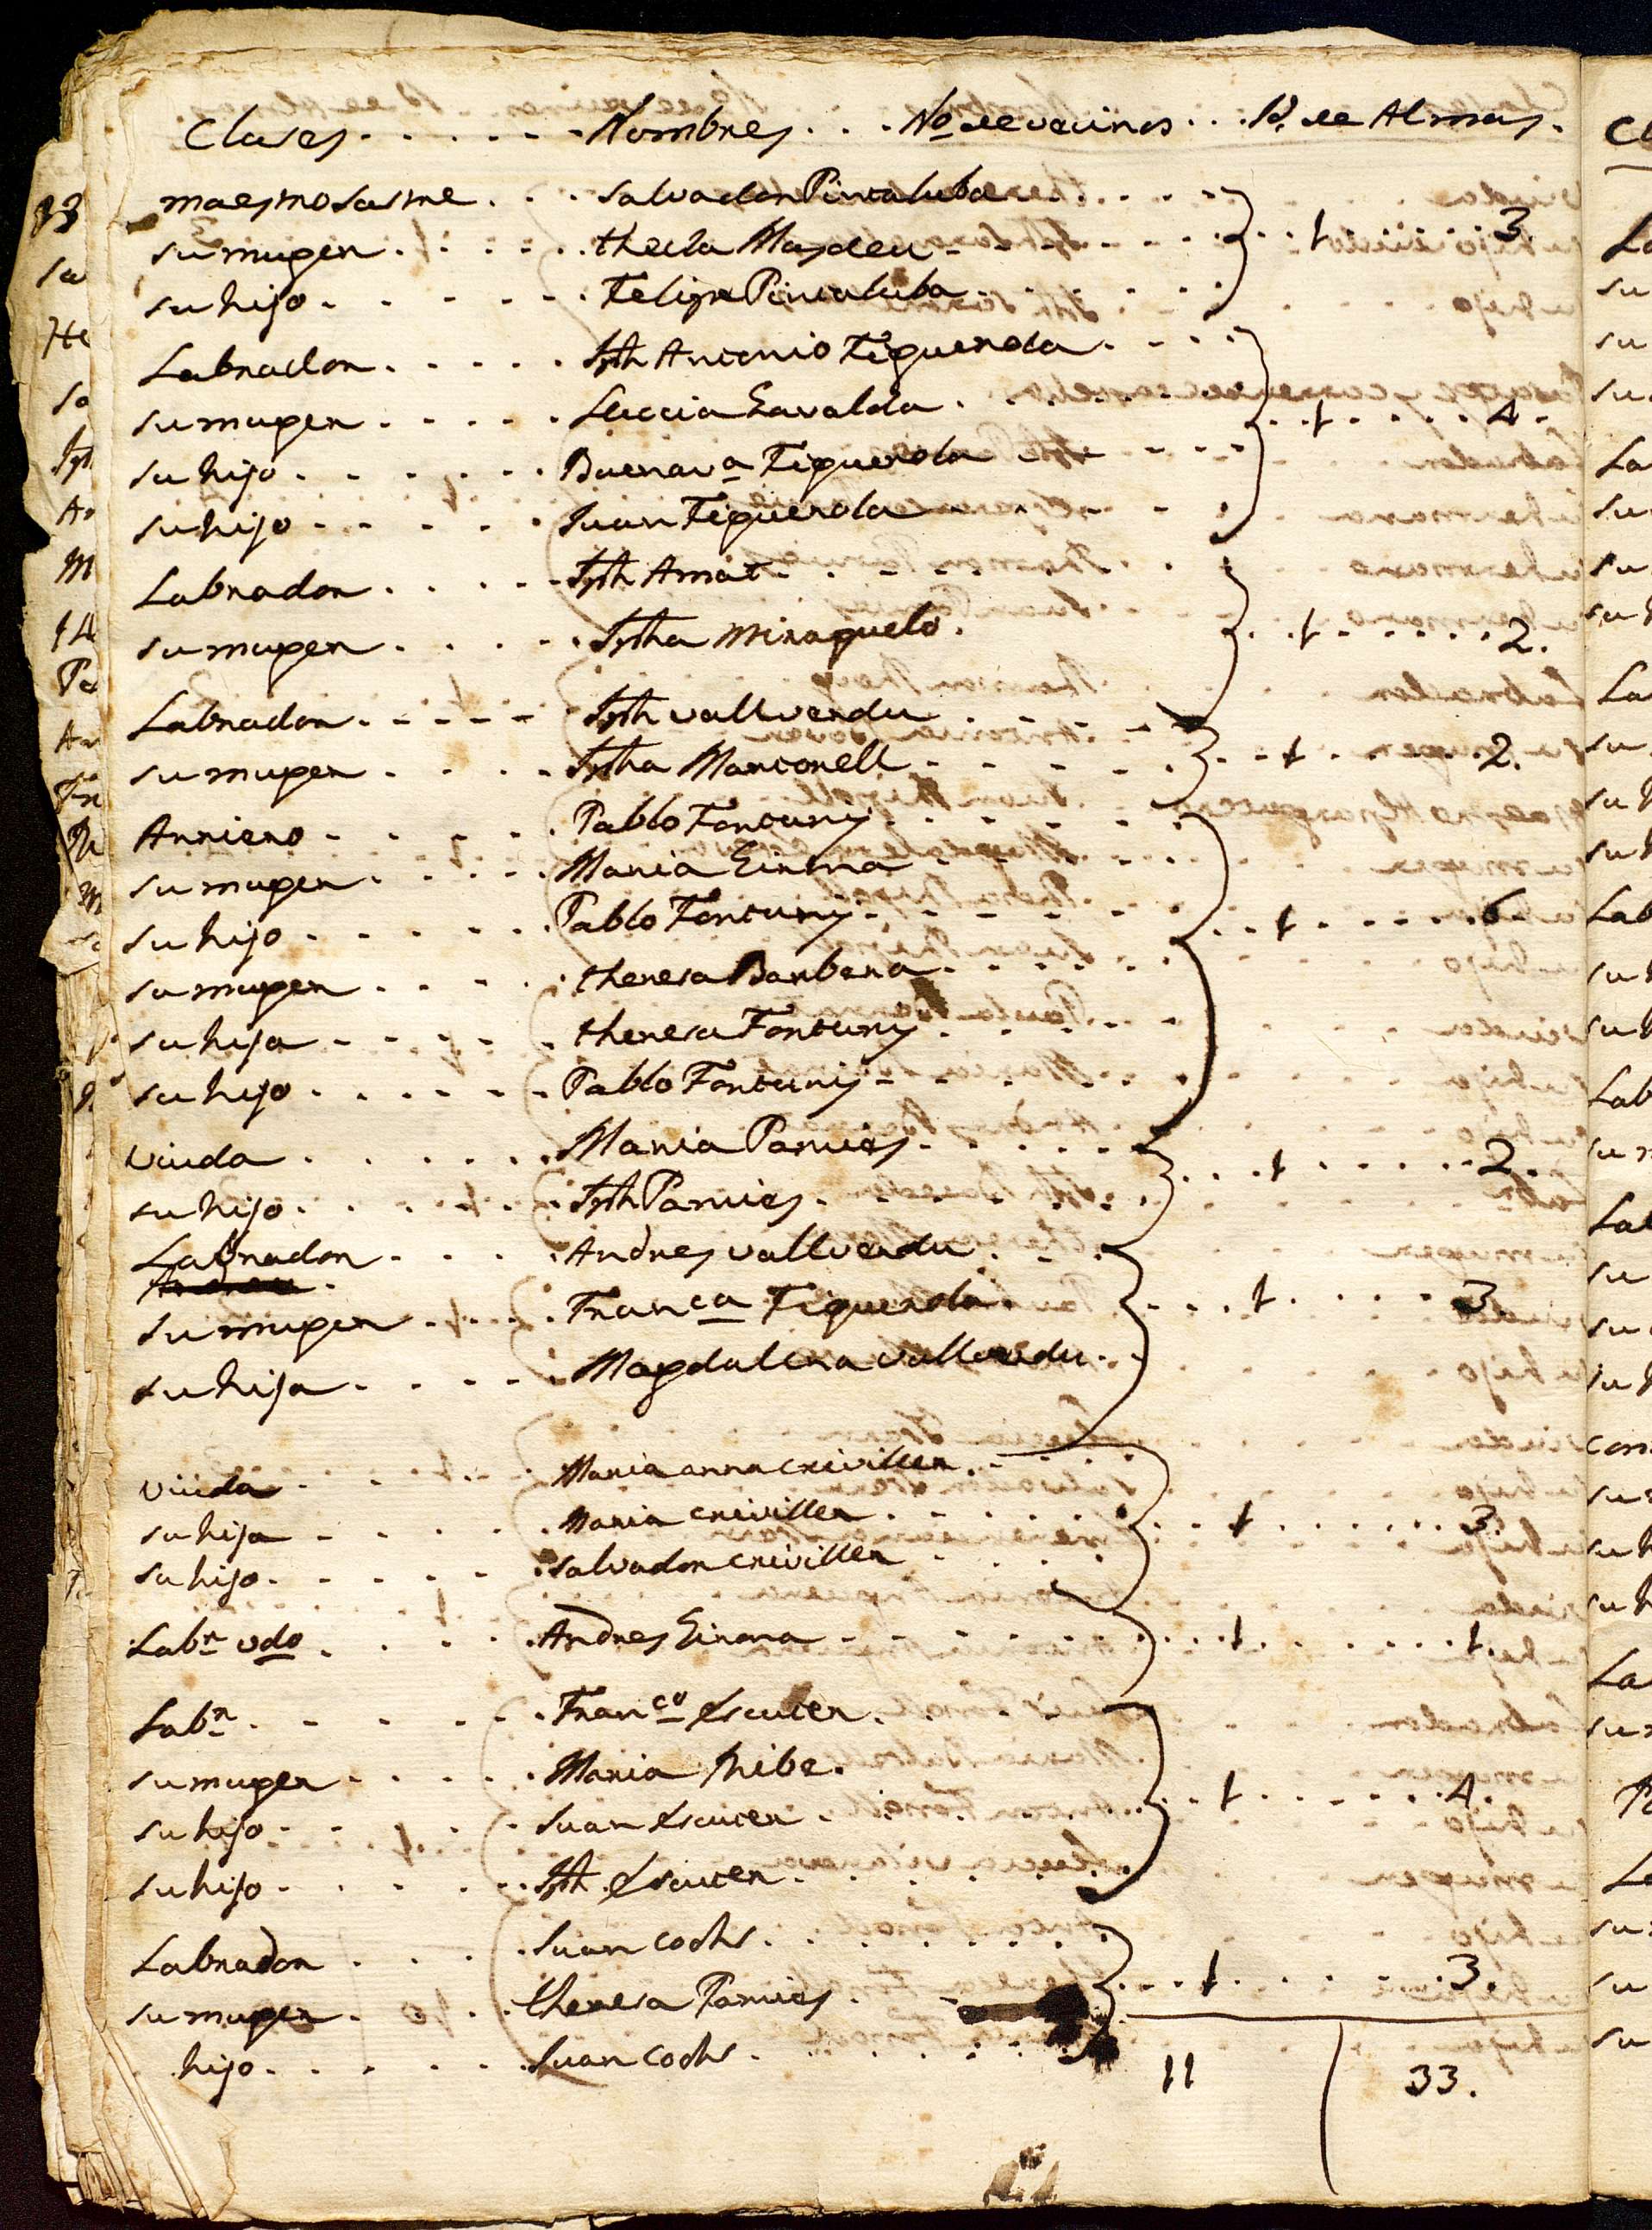 Clases - - - - - Nombres. . . Nº de vecinos . . . Nº de Almas.
maestro sastre. . . Salvador Pintaluba - - - -
su muger. . . . . . thecla Masdeu - - - - . . 1 . . . . . 3.
su hijo. - - - - . Felipe Pintaluba - - - -
Labrador. . . . . Jph Antonio Figuerola. - - -
su muger. . . . . Leccia Gavalda . - - - - . . 1 . . . . 4.
su hijo. - - - - Buenavª Figuerola - - - -
su hijo - - - - . Juan Figuerola - - - -
Labrador. . . . - Jph Amat. - - - -
su muger. . . . . Jpha Miraguelo. . . 1 - - - - . 2.
Labrador. - - - - Jph vallverdu - - - -
su muger. . . . . Jpha Martorell - - - - . . 1 . . . . 2.
Arriero - - - - . Pablo Fortuny - - - -
su muger. . . . . Maria Girona - - - -
su hijo. - - - - . Pablo Fortuny - - - - . . 1 . . . . 6
su muger. . . . . theresa Barbera. - - - -
su hija - - - - . theresa Fortuny. - - - -
su hijo. . . . - - Pablo Fortuny - - - -
viuda . . . . . . Maria Pamies. - - - -
su hijo. . . . . . Jph Pamies. - - - - . . 1 . . . . 2.
Labrador. . . . . Andres vallverdu. - - -
su muger. . . . . Franca Figuerola. - - . 1 . . . . 3
su hija. . . . . . Magdalena vallverdu. -
viuda - - - - Maria anna creviller. - - -
su hija - - - . . Maria creviller. . . . . . 1 . . . . . 3.
su hijo. - - - - . Salvador creviller - - - -
Labr vdo. . . . . Andres Girona - - - - . . 1. . . . . 1.
Labr. - - - - . Franco Escuter. - - -
su muger. . . . . Maria Ribe.
su hijo. - - - - . Juan Escuter. - - - . . 1 . . . . 4.
su hijo. - - - - . Jph Escuter. - - - -
Labrador . . . . Juan Cochs. . . . . .
su muger. . . . . theresa Pamies. - - . . 1. . . . . 3.
hijo. . . . . . Juan Cochs. - - - -
11 33.